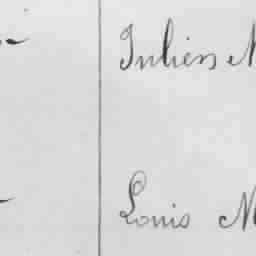 Julien
Louis